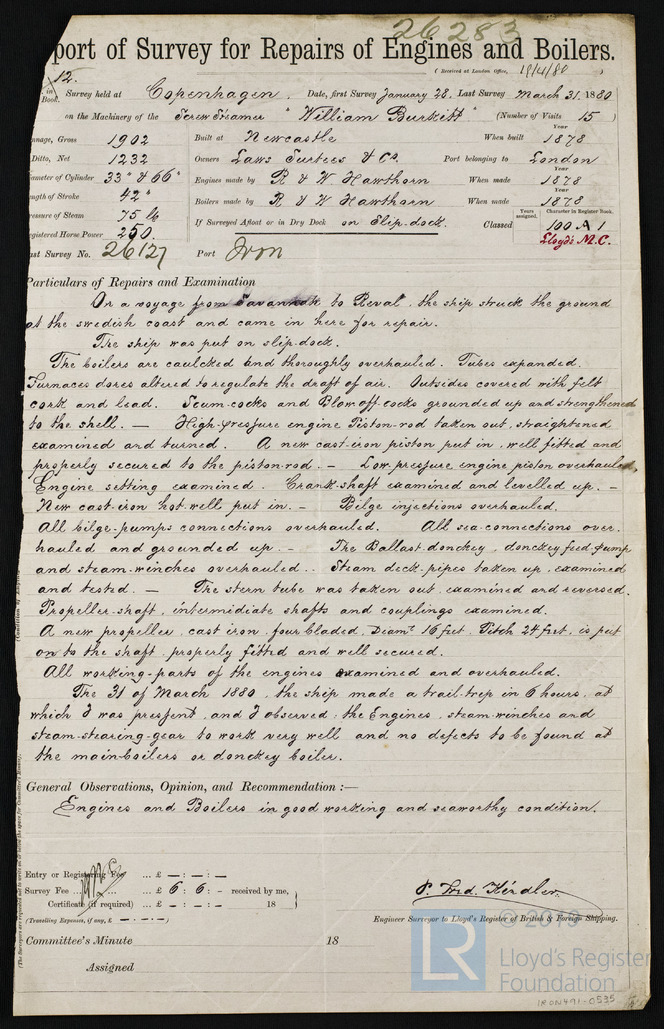 26283
port of Survey for Repairs of Engines and Boilers.
(Received at London Office, 19/4/80 )
12.
in Book. Survey held at Copenhagen. Date, first Survey January 28, Last Survey March 31, 1880
on the Machinery of the Screw Steamer "William Burkitt" (Number of Visits 15 )
nnage, Gross 1902 Built at Newcastle When built Year 1878
Ditto, Net 1232 Owners Laws Surtees & Co. Port belonging to London
ameter of Cylinder 33" & 66" Engines made by R & W Hawthorn When made Year 1878
ength of Stroke 42" Boilers made by R & W Hawthorn When made 1878
ressure of Steam 75 lb If Surveyed Afloat or in Dry Dock on Slip-dock. Classed Years assigned. Character in Register Book. 100 A 1
egistered Horse Power 250. Lloyd's M.C.
ast Survey No. 26127 Port Iron
Particulars of Repairs and Examination
On a voyage from Savannah to Reval, the ship struck the ground
at the swedish coast and came in here for repair.
The ship was put on slip-dock.
The boilers are caulcked and thoroughly overhauled. Tubes expanded.
Furnaces dores altered to regulate the draft of air. Outsides covered with felt
cork and lead. Scum-cocks and Blow off-cocks grounded up and strengthened
to the shell. — High-pressure engine Piston-rod taken out, straightened
examined and turned. A new cast-iron piston put in, well fitted and
properly secured to the piston-rod. — Low-pressure engine piston overhauled,
Engine setting examined. Crank-shaft examined and levelled up. —
New cast-iron hot-well put in. — Bilge injections overhauled.
All bilge-pumps connections overhauled. All sea-connections over-
hauled and grounded up. — The Ballast-donckey, donckey feed-pump
and steam-winches overhauled.. Steam deck-pipes taken up, examined
and tested. — The stern tube was taken out, examined and reversed.
Propeller-shaft, intermidiate shafts and couplings examined.
A new propeller, cast iron, four bladed, Diamr 16 feet, Pitch 24 feet, is put
on to the shaft, properly fitted and well secured.
All working-parts of the engines examined and overhauled.
The 31 of March 1880, the ship made a trail-trep in 6 hours, at
which I was present, and I observed, the Engines, steam-winches and
steam-stearing-gear to work very well and no defects to be found at
the main-boilers or donckey boiler.
General Observations, Opinion, and Recommendation:—
Engines and Boilers in good working and seaworthy condition.
Entry or Registering Fee ... £ — : — : —
Survey Fee ... £ 6 : 6 : - received by me,
Certificate (if required) ... £ — : — : — 18
(Travelling Expenses, if any, £ — )
Engineer Surveyor to Lloyd's Register of British & Foreign Shipping.
Committee's Minute 18
Assigned
© 2019
LR
Lloyd's Register
Foundation
IRON491-0535